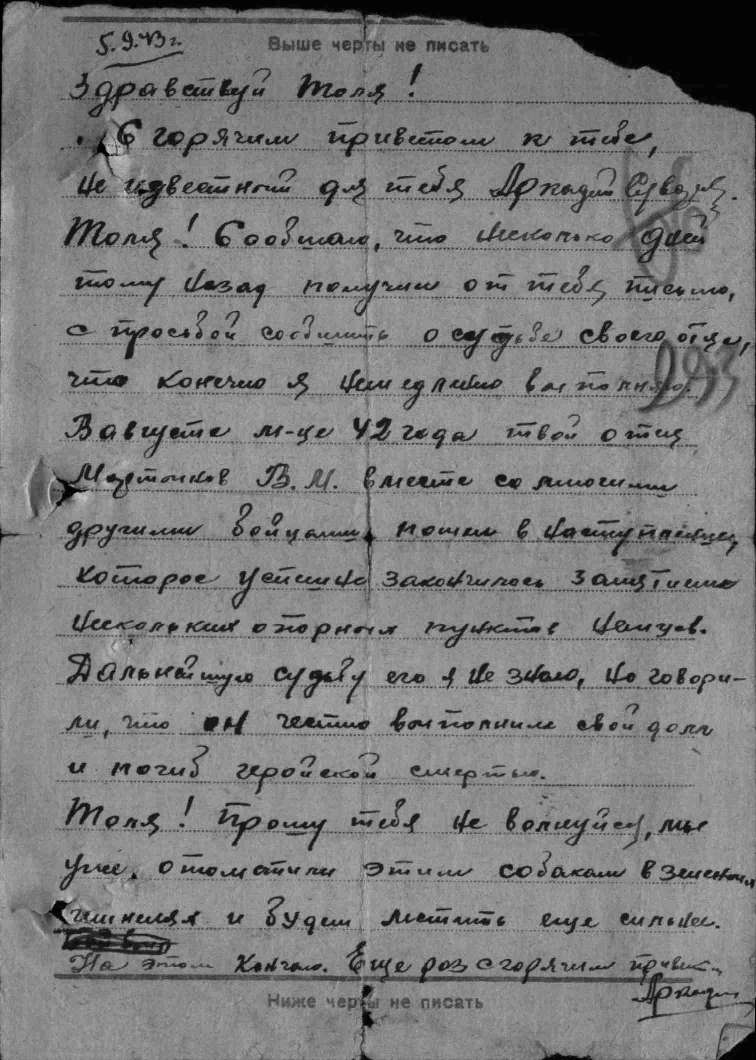 5.9.43 г.
Выше черты не писать
Здравствуй Толя!
С горячим приветом к тебе,
не известный для тебя Аркадий
Толя! Сообщаю, что несколько дней
тому назад получил от тебя письмо,
с просьбой сообщить о судьбе своего отца,
что конечно я немедленно выполняю.
293
В августе м-це 42 года твой отец
В. М. вместе со многими
другими бойцами пошел в наступление,
которое успешно закончилось занятием
нескольких опорных пунктов немцев.
Дальнейшую судьбу его я не знаю, но говори-
ли, что он честно выполнил свой долг
и погиб геройской смертью.
Толя! Прошу тебя не волнуйся, мы
уже отомстили этим собакам в зеленых
шинелях и будем мстить еще сильнее.
На этом кончаю. Еще раз с горячим
Аркадий
Ниже черты не писать